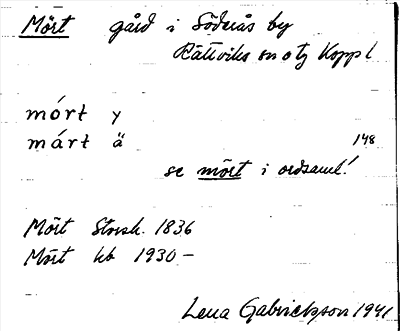 Mört gård i Söderås by
Rättviks sn o tg Koppl
mórt y
márt ä
148
se mört i ordsaml!
Mört Storsk. 1836
Mört kb 1930-
Lena Gabrielsson 1941